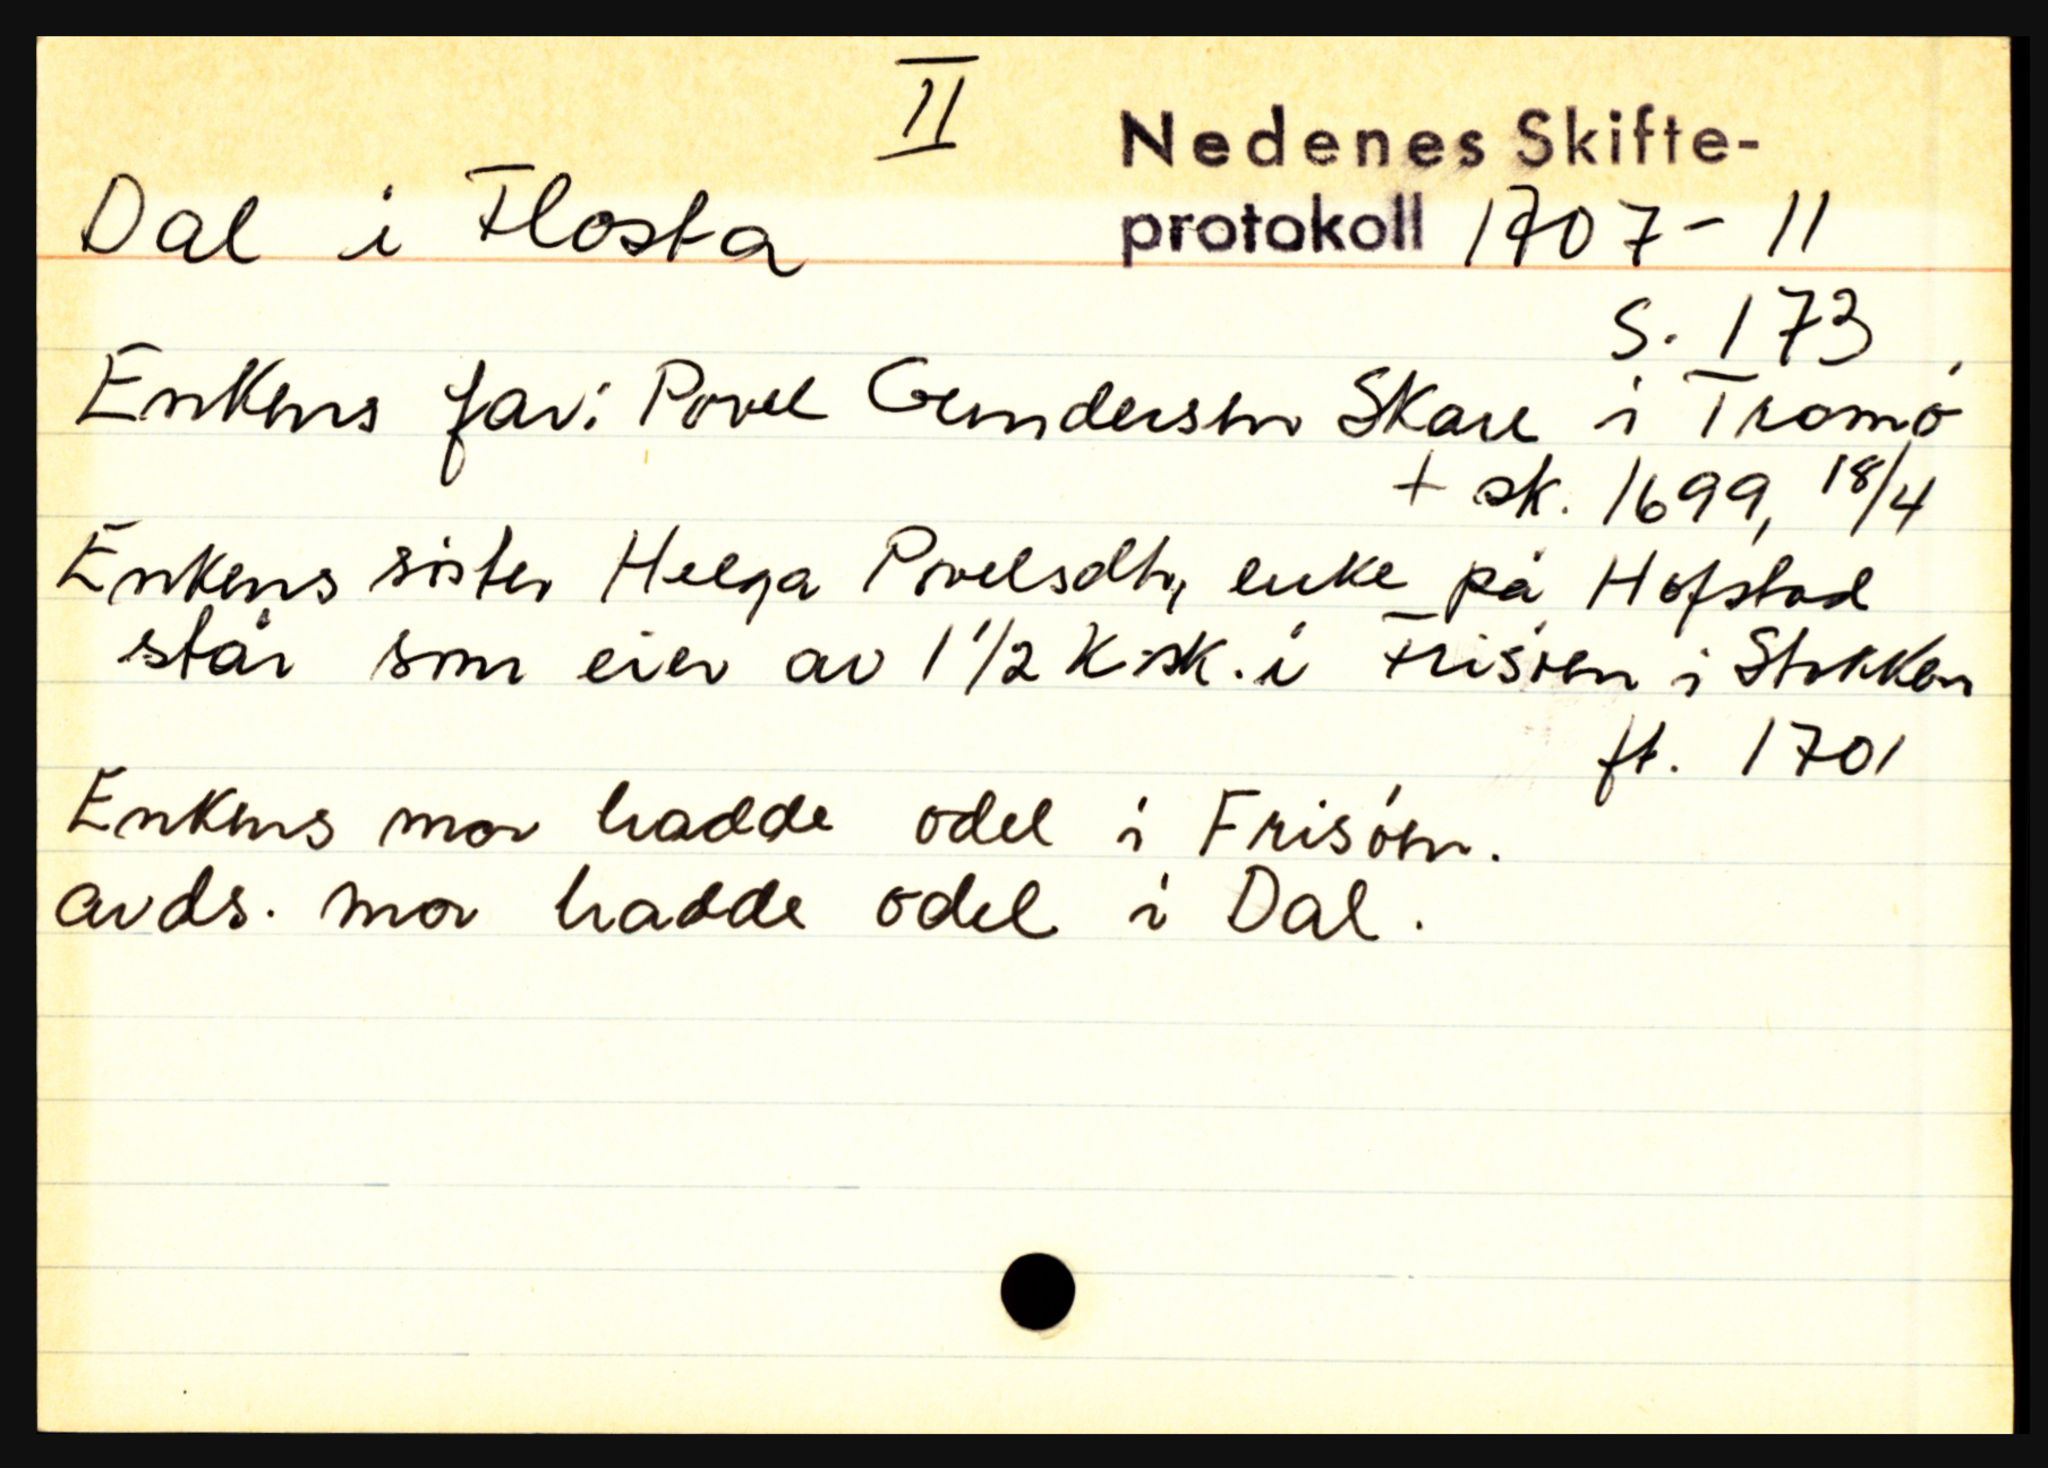 II
Nedenes Skifte-
Dal i Flosta protokoll 1707-11
S. 173
Enkens far: Povel Gundersen Skare i Tromö
+ sk. 1699, 18/4
Enkens sister Helga Povelsdtr, enke på Hofstad
står som eier av 1 1/2 k-sk. i Frisöen i Stokken
ft. 1701
Enkens mor hadde odel i Frisöen.
avds. mor hadde odel i Dal.